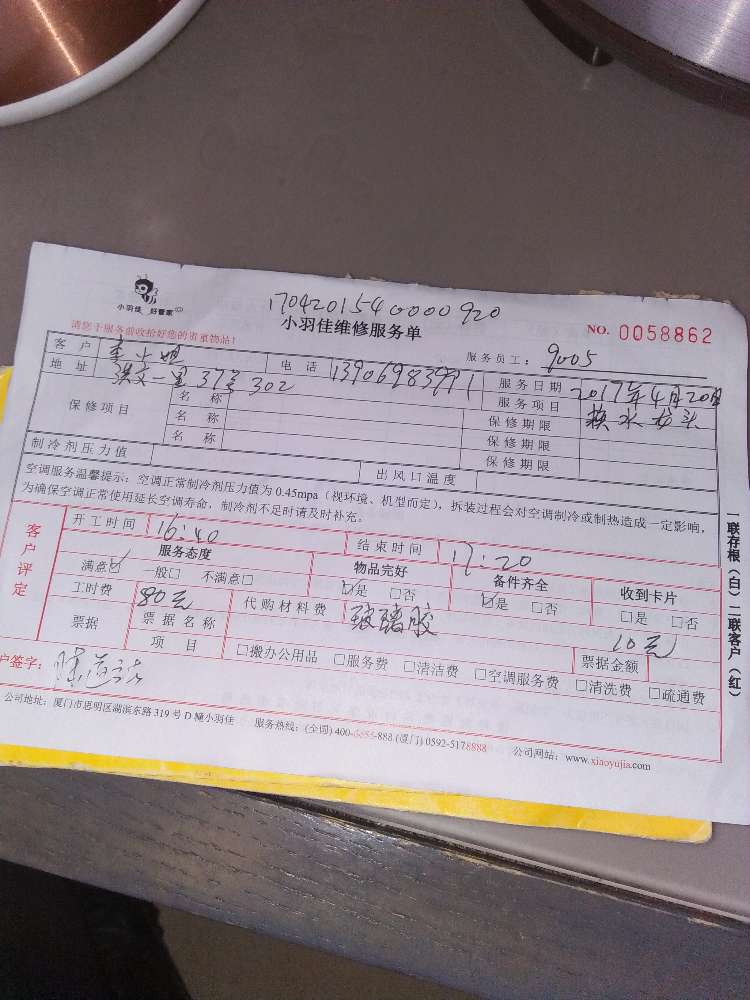 小羽佳 好管家
170420154000920
小羽佳维修服务单
NO. 0058862
请您于服务前收拾好您的贵重物品!
服务员工: 9005
客户 李小姐 电话 13906983991 服务日期 2017年4月20日
地址 洪文一里37号302 服务项目 换水龙头
保修项目 名称 保修期限
名称 保修期限
名称 保修期限
制冷剂压力值 出风口温度
空调服务温馨提示: 空调正常制冷剂压力值为0.45mpa (视环境、机型而定), 拆装过程会对空调制冷或制热造成一定影响,
为确保空调正常使用延长空调寿命, 制冷剂不足时请及时补充。
客户评定
开工时间 16:40 结束时间 17:20
服务态度 物品完好 备件齐全 收到卡片
满意☑ 一般□ 不满意□ ☑是 □否 ☑是 □否 □是 □否
工时费 80元 代购材料费 玻璃胶 10元
票据 票据名称 票据金额
项目 □搬办公用品 □服务费 □清洁费 □空调服务费 □清洗费 □疏通费
户签字:
公司地址: 厦门市思明区湖滨东路319号D幢小羽佳 服务热线: (全国) 400-888 (厦门) 0592-5178888 公司网站: www.xiaoyujia.com
一联存根(白) 二联客户(红)